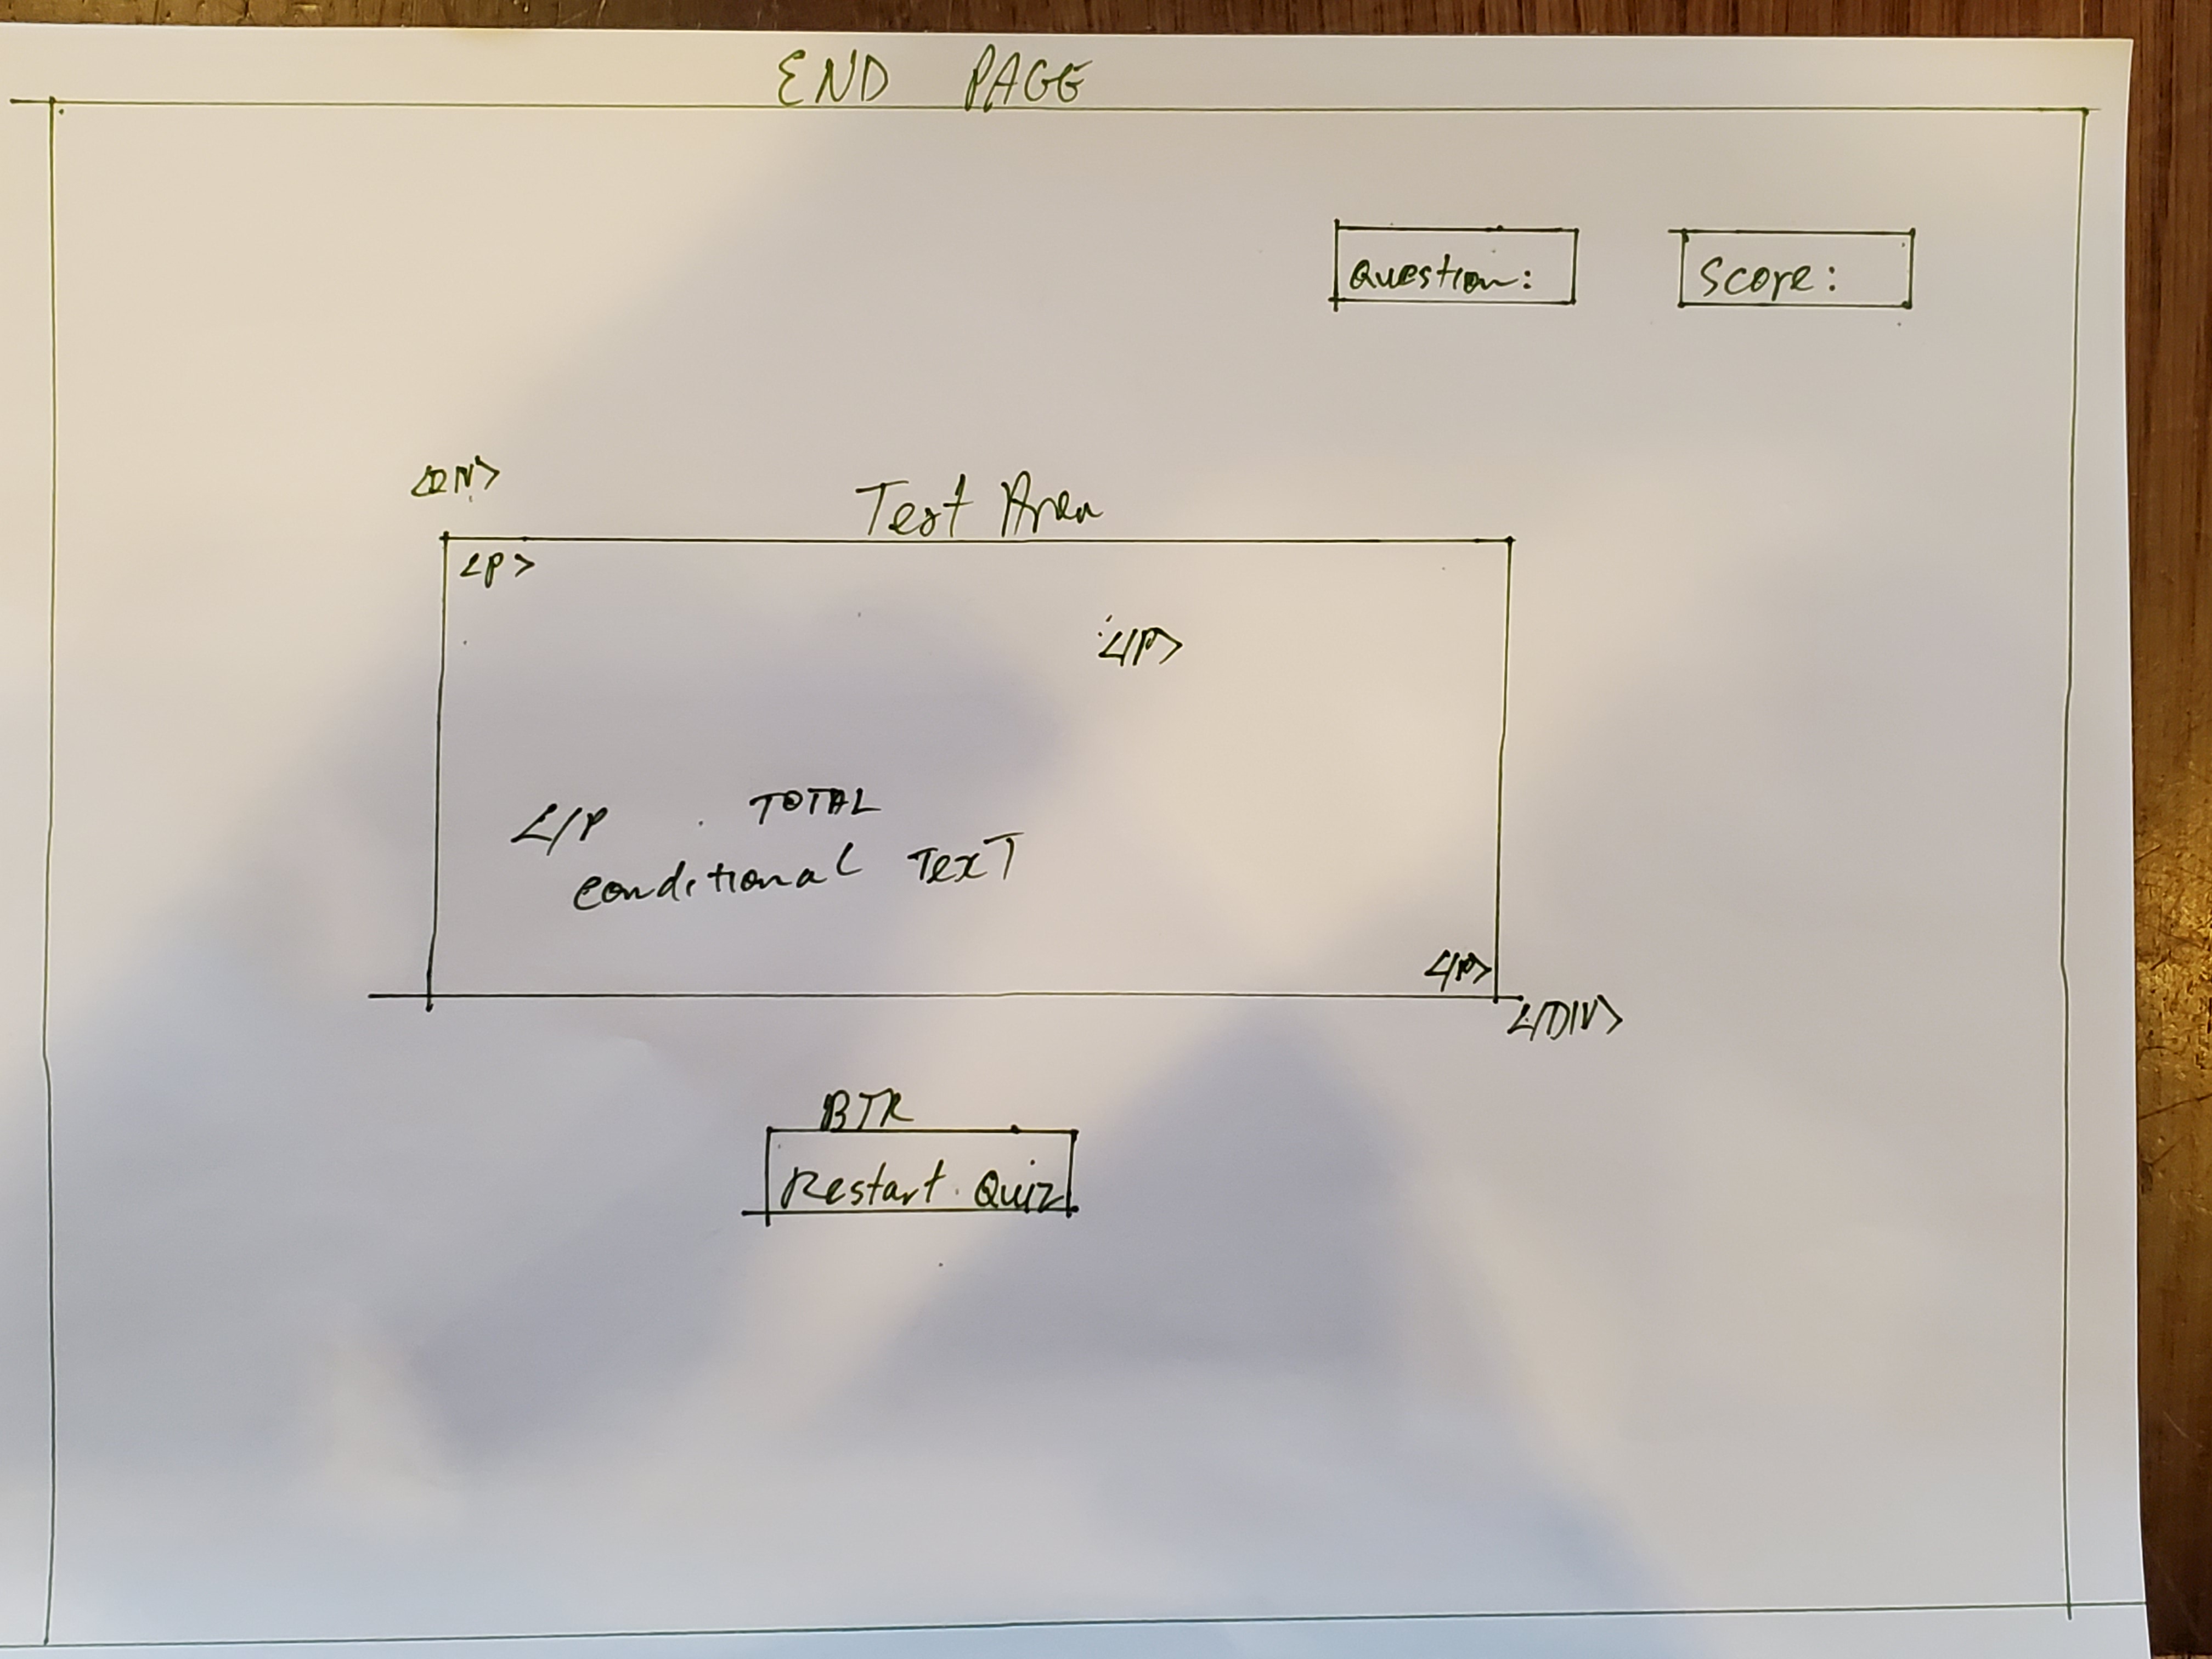 END PAGE
Question:
Score:
Test Area
<P>
</P>
</P
TOTAL
conditional TexT
</P>
</DIV>
BTR
Restart Quiz